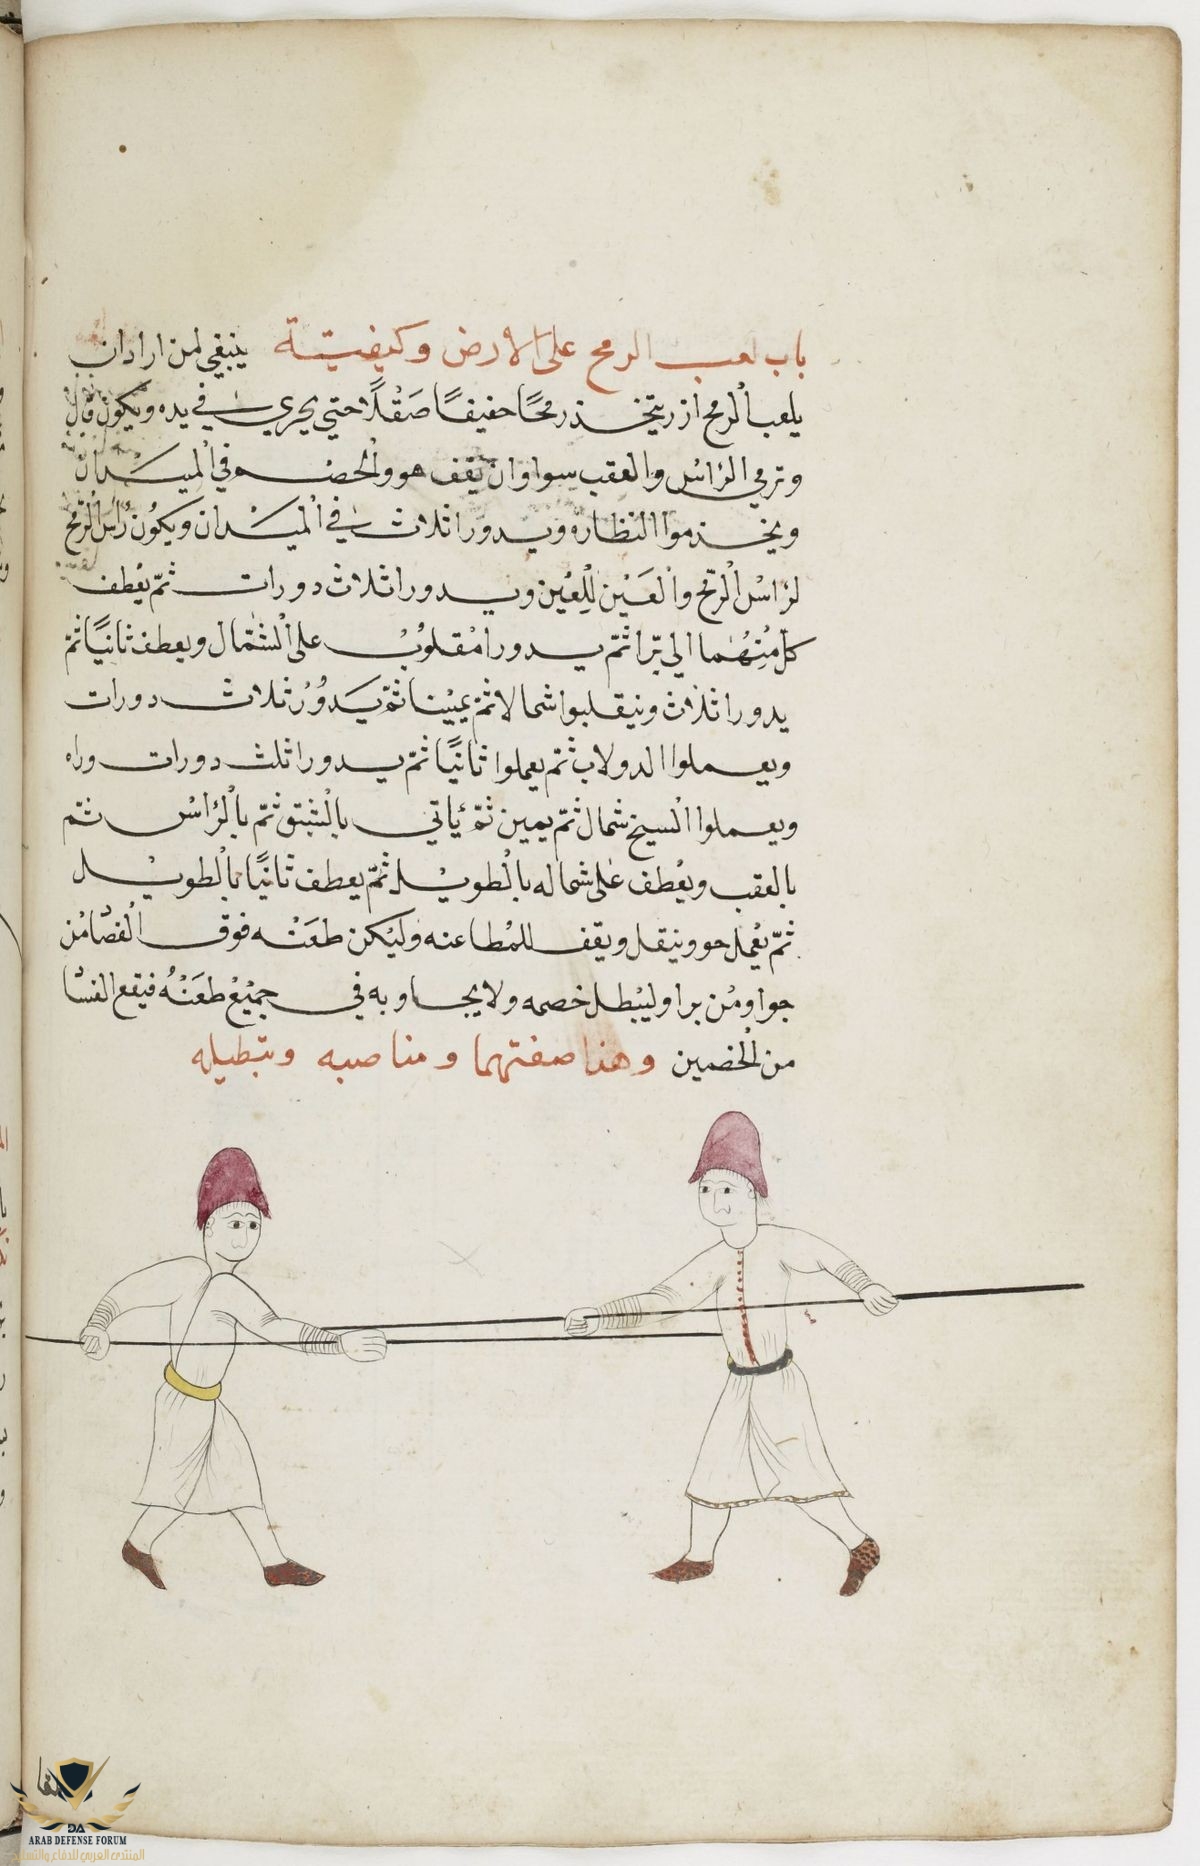 باب لعب الرمح على الارض وكيفيتة ينبغي لمن ارادان
يلعب الرمح ان يتخذ رمحًا خفيفًا صَقْلًا حتي يجري في يده ويكون
وترمي الرّاسْ والعقب سواوان يقف هو والخصم في الميدان
ويخذموا النظاره ويدورا ثلاث في الميدان ويكون رُاس الرّمح
لرّاسْ الرّمح والعَيْن للِعُين ويدورا ثلاث دورات ثمّ يعُطف
كلّ مُنِهُما الي برّا ثمّ يدورا مْقلوُبْ على الشمال ويعطف ثانيًا ثمّ
يدورا ثلاث ونيقلبوا شمالا ثمّ يميْنا ثمّ يَدوُرْ ثلاث دورات
ويعملوا الدولاب ثمّ يعملوا ثانيًا ثمّ يدورا ثلث دورات وراه
ويعملوا السيخ شمال ثمّ يمين ثمّ ئاتي بالشتق ثمّ بالرّاسْ ثمّ
بالعقب ويعُطف على شماله بالطويْل ثمّ يعطف ثانيًا بالطويْل
ثمّ يعُمل حو وينقل ويقف للمُطاعنه وليَكن طعَنْه فوق الفصْامْن
جوا ومْن برا وليبْطل خصمه ولا يجاوبه في جميْع طعَنْهُ فيقع الفسْا
من الخصمين وهذا صفتهما ومناصبه وتبطيله
DA
ARAB DEFENSE FORUM
المنتدى العربي للدفاع والتسليح